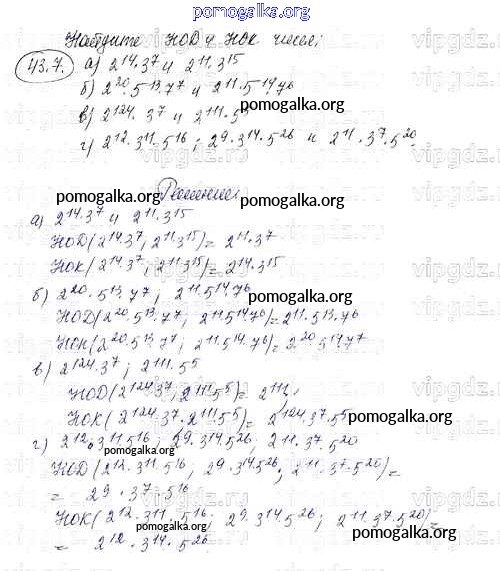 pomogalka.org
Найдите НОД и НОК чисел:
43.7. а) 2¹⁴·3⁷ и 2¹¹·3¹⁵
б) 2²⁰·5¹³·7⁷ и 2¹¹·5¹⁴·7⁶
в) 2¹²⁴·3⁷ и 2¹¹¹·5⁵
pomogalka.org
г) 2¹²·3¹¹·5¹⁶; 2⁹·3¹⁴·5²⁶ и 2¹¹·3⁷·5²⁰.
Решение:
pomogalka.org
pomogalka.org
а) 2¹⁴·3⁷ и 2¹¹·3¹⁵
НОД(2¹⁴·3⁷; 2¹¹·3¹⁵)= 2¹¹·3⁷
НОК(2¹⁴·3⁷; 2¹¹·3¹⁵)= 2¹⁴·3¹⁵
б) 2²⁰·5¹³·7⁷; 2¹¹·5¹⁴·7⁶
pomogalka.org
НОД(2²⁰·5¹³·7⁷; 2¹¹·5¹⁴·7⁶)=2¹¹·5¹³·7⁶
НОК(2²⁰·5¹³·7⁷; 2¹¹·5¹⁴·7⁶)=2²⁰·5¹⁴·7⁷
в) 2¹²⁴·3⁷; 2¹¹¹·5⁵
НОД(2¹²⁴·3⁷; 2¹¹¹·5⁵)= 2¹¹¹;
НОК(2¹²⁴·3⁷·2¹¹¹·5⁵)= 2¹²⁴·3⁷·5⁵
pomogalka.org
г) 2¹²·3¹¹·5¹⁶; 2⁹·3¹⁴·5²⁶; 2¹¹·3⁷·5²⁰
pomogalka.org
НОД(2¹²·3¹¹·5¹⁶; 2⁹·3¹⁴·5²⁶; 2¹¹·3⁷·5²⁰)=
= 2⁹·3⁷·5¹⁶
НОК(2¹²·3¹¹·5¹⁶; 2⁹·3¹⁴·5²⁶; 2¹¹·3⁷·5²⁰)=
pomogalka.org
= 2¹²·3¹⁴·5²⁶
pomogalka.org